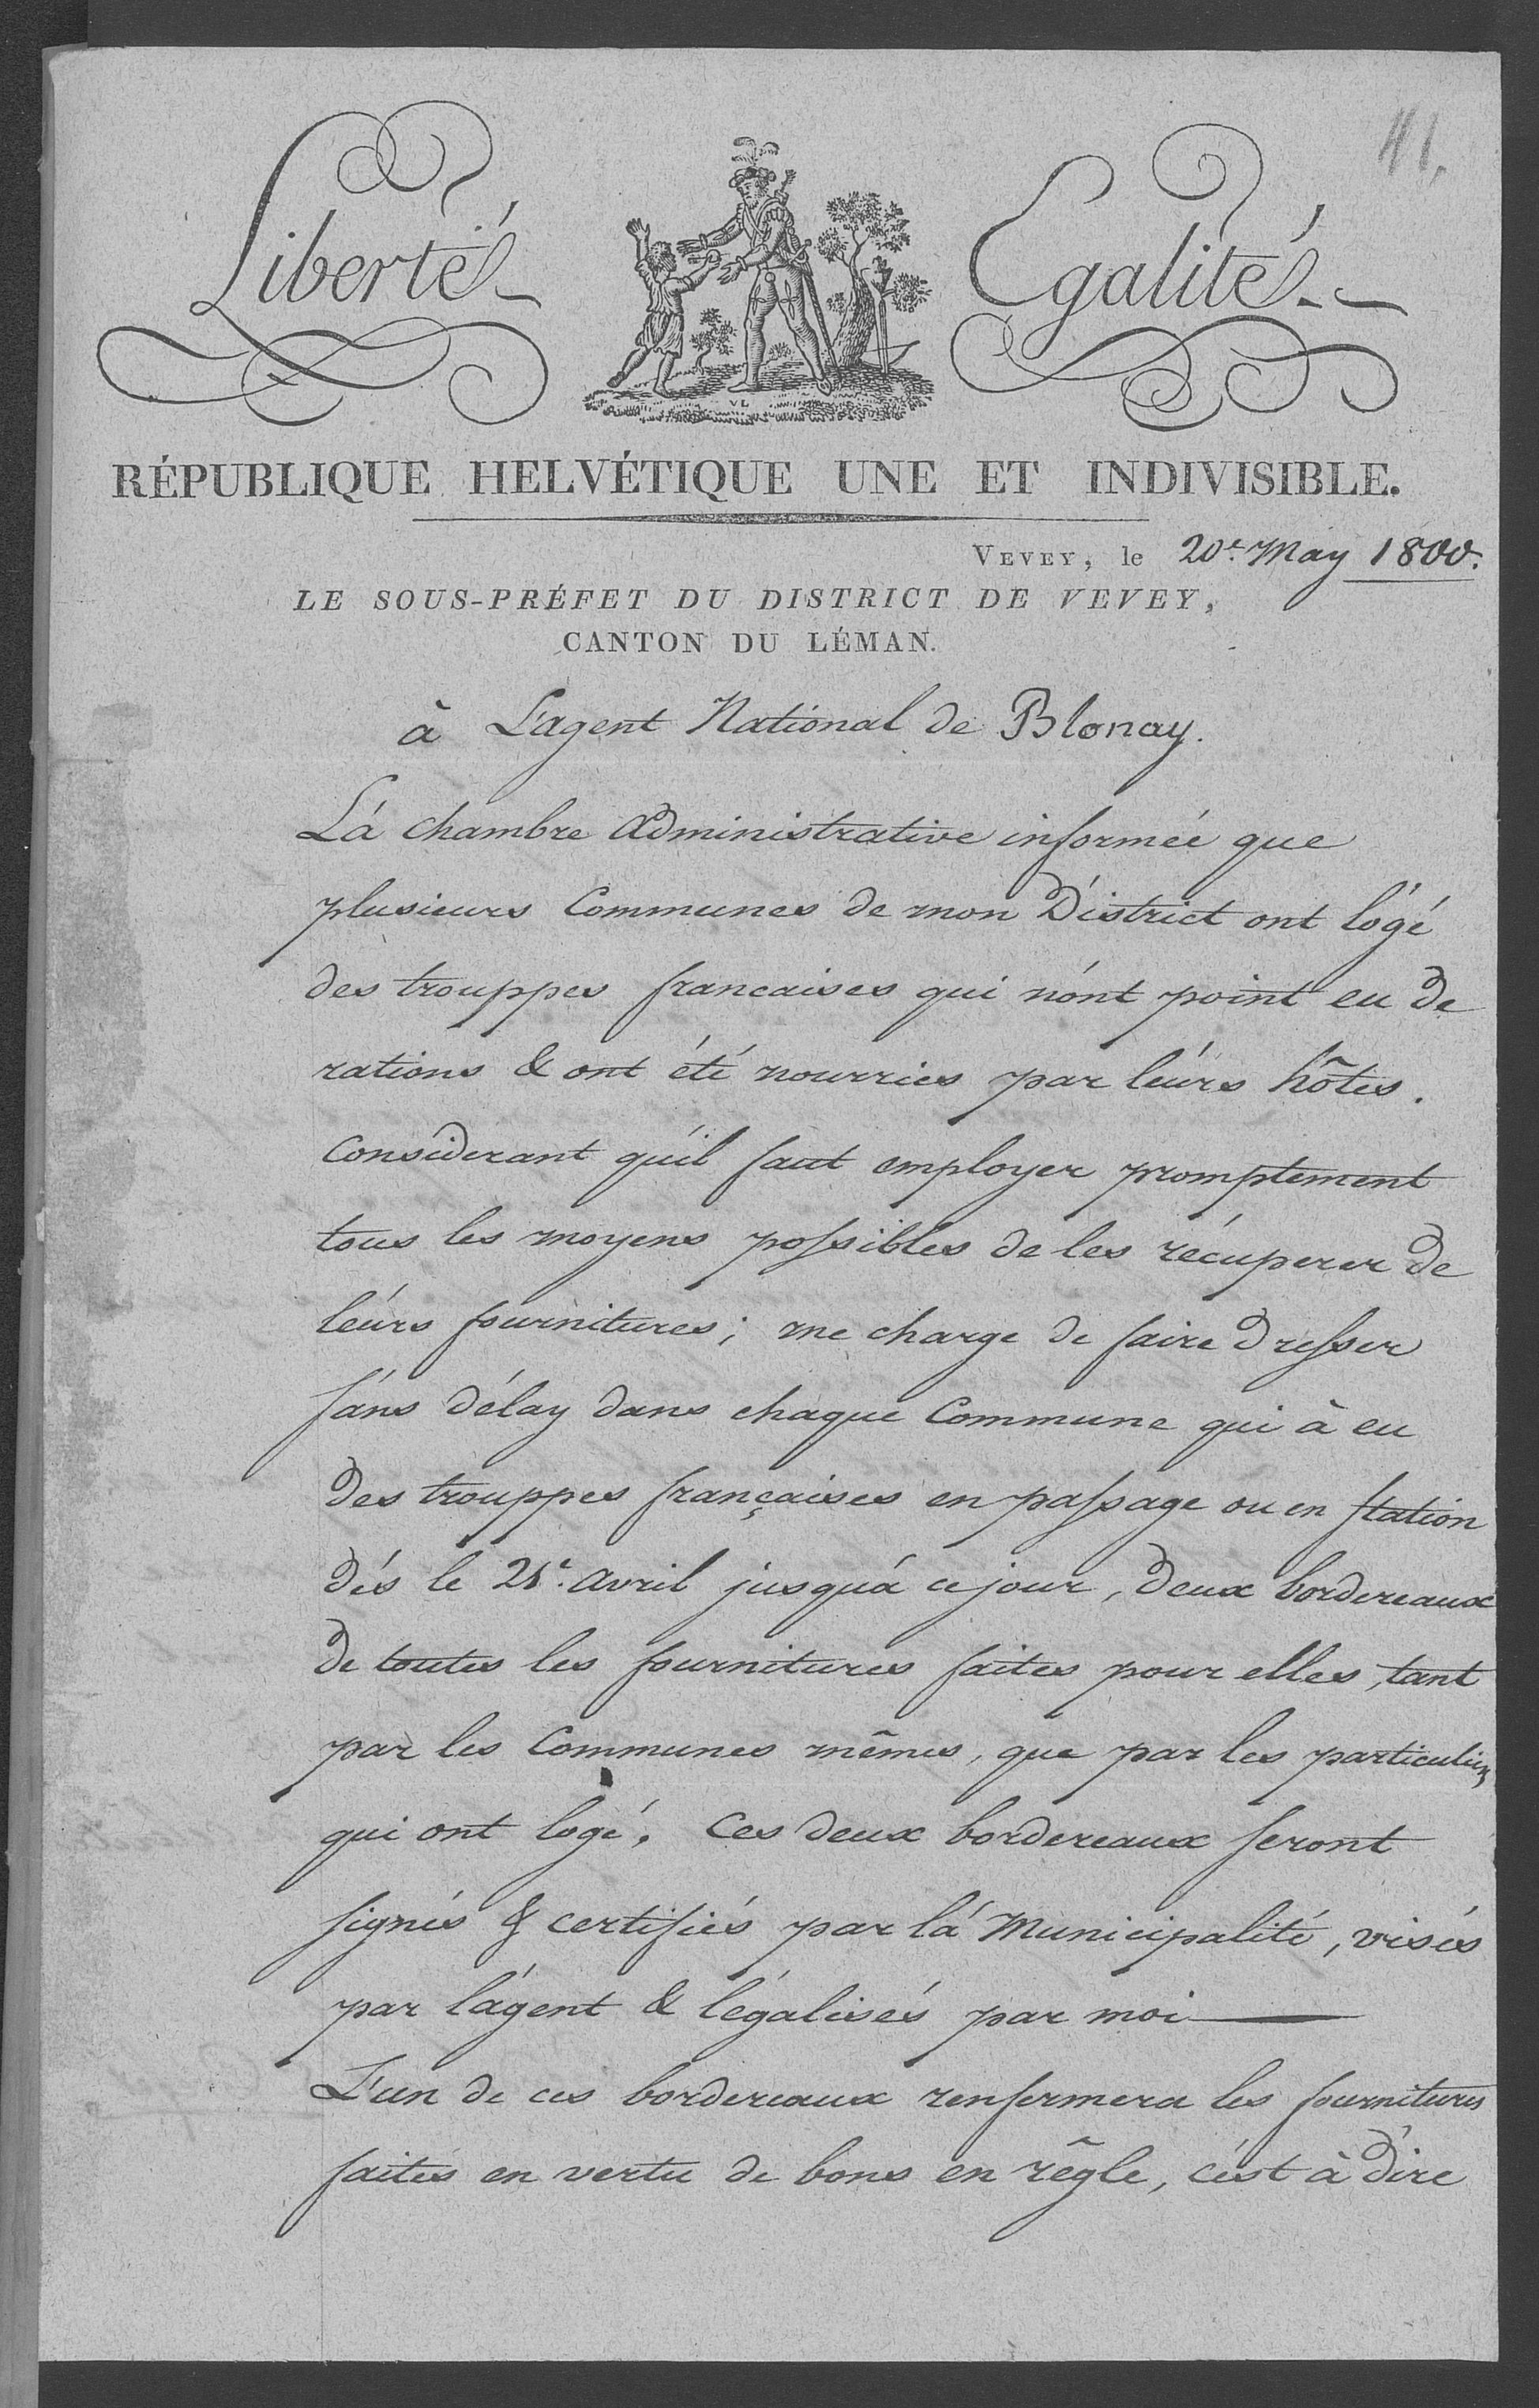 41.
Liberté Egalité
RÉPUBLIQUE HELVÉTIQUE UNE ET INDIVISIBLE.
VEVEY, le 20e. May 1800.
LE SOUS-PRÉFET DU DISTRICT DE VEVEY,
CANTON DU LÉMAN.
à L'agent National de Blonay.
Lá chambre administrative informée que
plusieurs Communes de mon District ont lógé
des trouppes francaises qui n'ónt point eu de
rations & ont été nourries par léurs hôtes.
Considerant qu'il faut employer promptement
tous les moyens possibles de les récuperer de
léurs fournitures; me charge de faire dresser
sáns délay dans chaque Commune qui à eu
des trouppes françaises en passage ou en station
dés le 21e. avril jusqu'á ce jour, deux bordereaux
de toutes les fournitures faites pour elles, tant
par les Communes mêmes, que par les particuliers
qui ont logé. Ces deux bordereaux seront
signés & certifiés par lá Municipalité, visés
par l'ágent & légalisés par moi
L'un de ces bordereaux renfermera les fournitures
faites en vertu de bons en rêgle, c'ést à dire